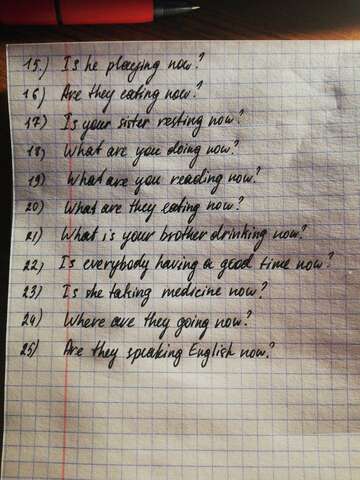 15.) Is he playing now?
16) Are they eating now?
17) Is your sister resting now?
18) What are you doing now?
19) What are you reading now?
20) What are they eating now?
21) What is your brother drinking now?
22) Is everybody having a good time now?
23) Is she taking medicine now?
24) Where are they going now?
25) Are they speaking English now?